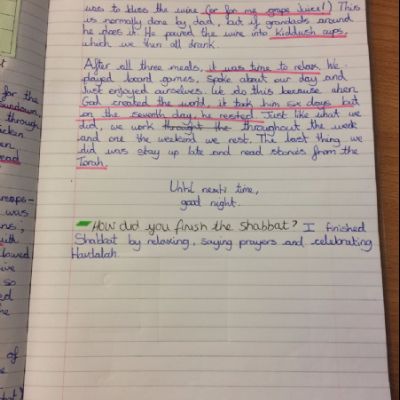 was to bless the wine (or for me, grape juice!) This
is normally done by dad, but if grandads around
he does it. He poured the wine into Kiddush cups,
which we then all drank.
After all three meals, it was time to relax. We
played board games, spoke about our day and
just enjoyed ourselves. We do this because when
God created the world, it took him six days but
on the seventh day, he rested. Just like what we
did, we work throught the throughout the week
and one the weekend we rest. The last thing we
did was stay up late and read stories from the
Torah.
Until next time,
good night.
How did you finish the shabbat? I finished
Shabbat by relaxing, saying prayers and celebrating
Havdalah.
for the
sundown,
through
was
lowed
so
ed
of